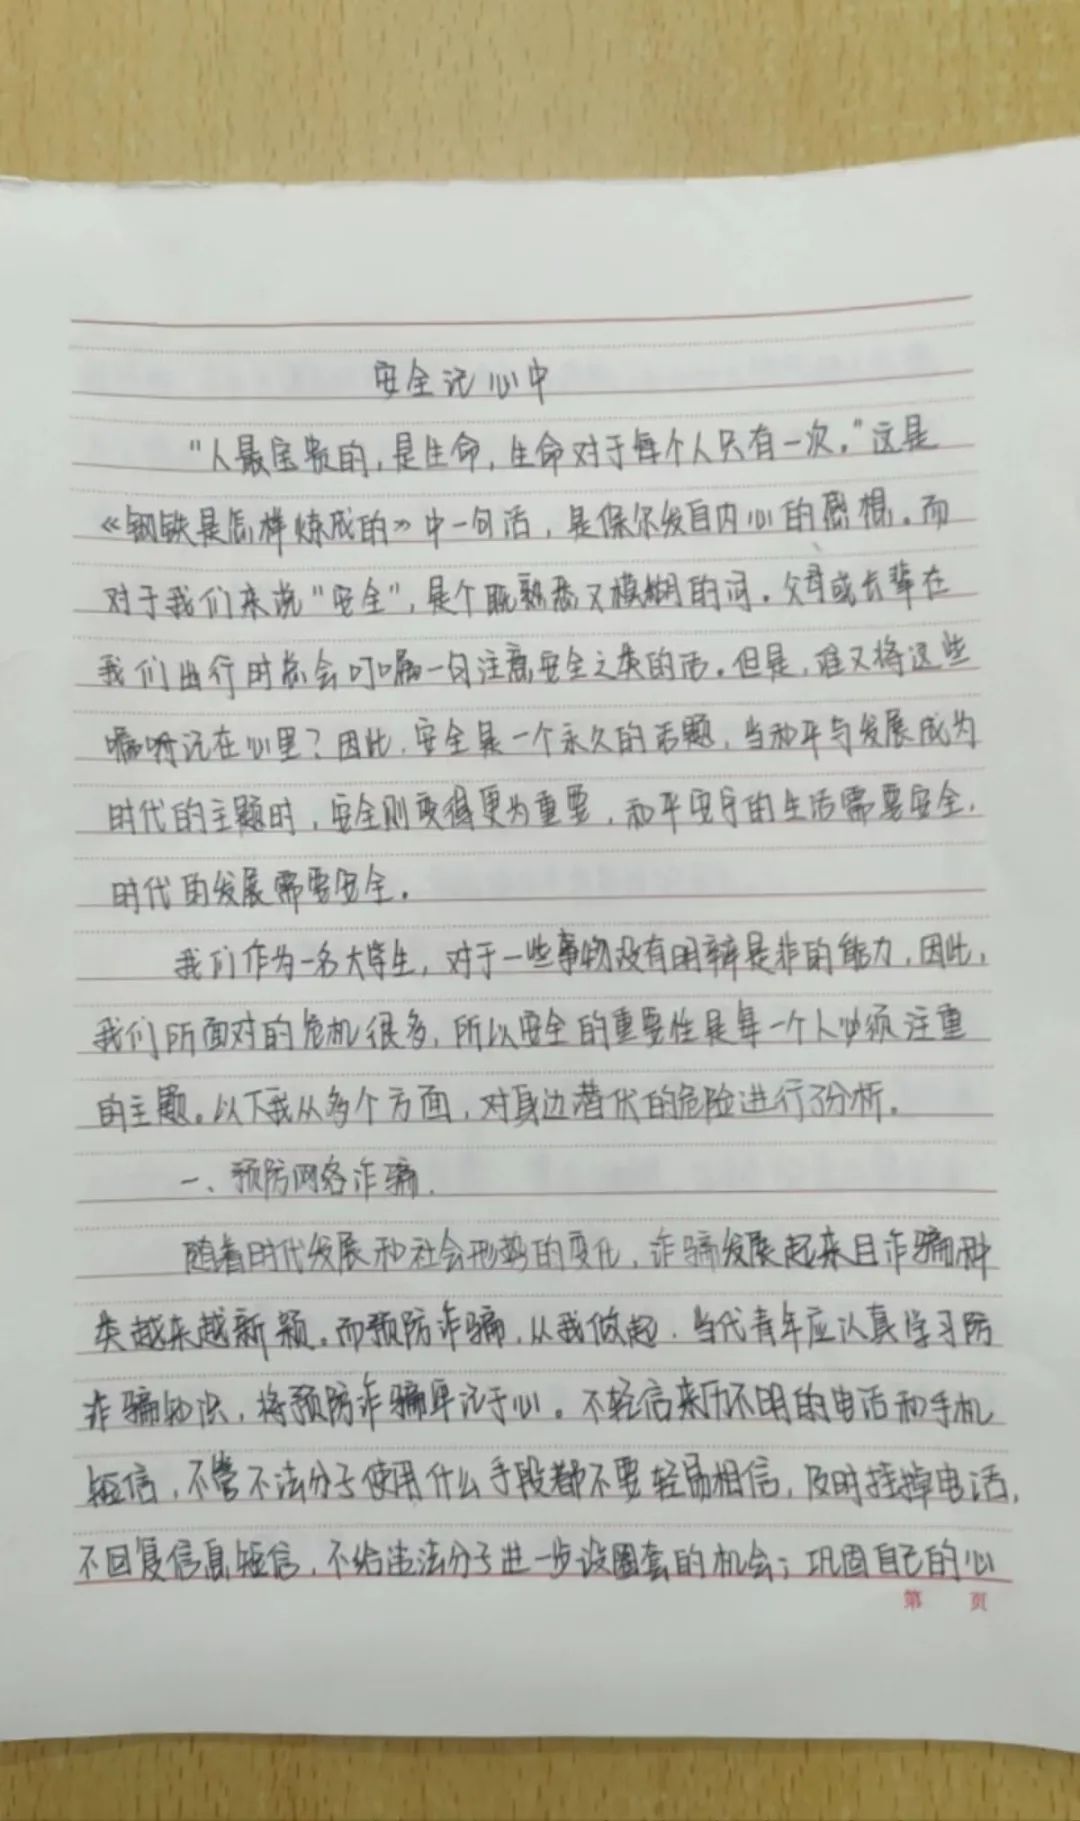 安全记心中
“人最宝贵的，是生命，生命对于每个人只有一次。”这是
《钢铁是怎样炼成的》中一句话，是保尔发自内心的感想。而
对于我们来说“安全”，是个既熟悉又模糊的词。父母或长辈在
我们出行时总会叮嘱一句注意安全之类的话。但是，谁又将这些
嘱咐记在心里？因此，安全是一个永久的话题，当和平与发展成为
时代的主题时，安全则变得更为重要，和平安宁的生活需要安全，
时代的发展需要安全。
我们作为一名大学生，对于一些事物没有明辨是非的能力，因此，
我们所面对的危机很多，所以安全的重要性是每一个人必须注重
的主题。以下我从多个方面，对身边潜伏的危险进行了分析。
一、预防网络诈骗.
随着时代发展和社会形势的变化，诈骗发展起来且诈骗种
类越来越新颖。而预防诈骗，从我做起，当代青年应认真学习防
诈骗知识，将预防诈骗牢记于心。不轻信来历不明的电话和手机
短信，不管不法分子使用什么手段都不要轻易相信，及时挂掉电话，
不回复信息短信，不给违法分子进一步设圈套的机会；巩固自己的心
第 页